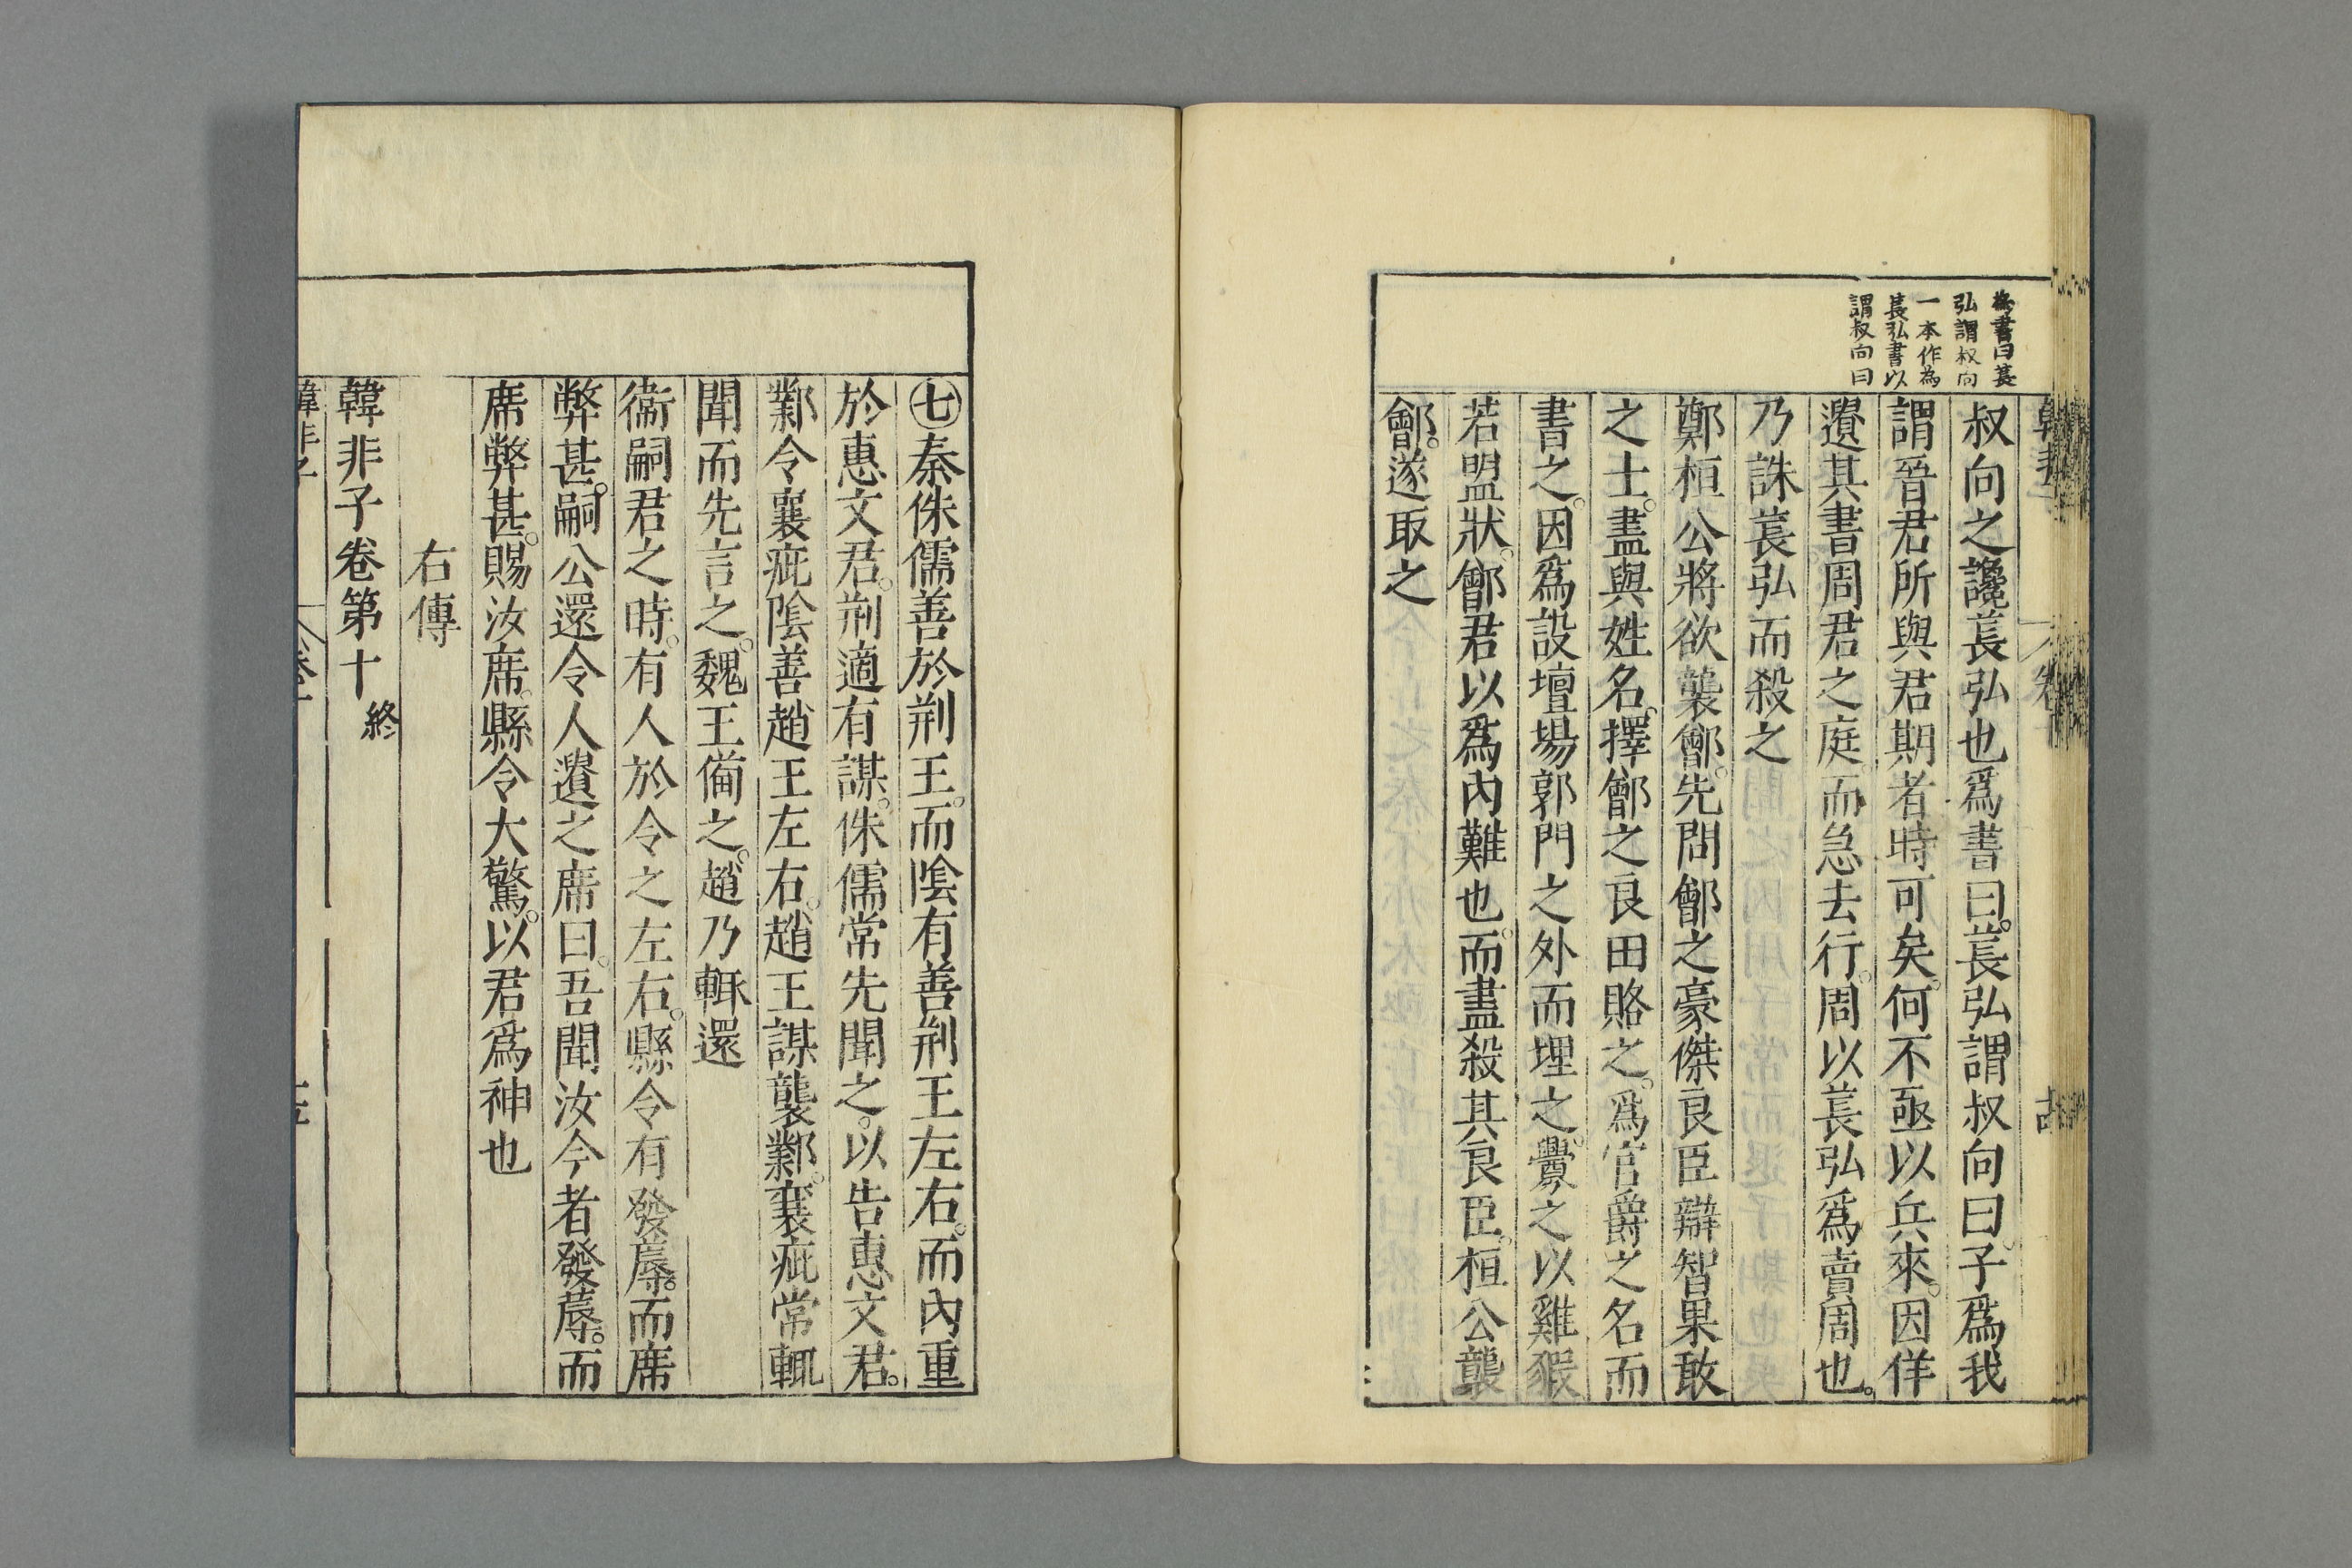 爲書曰萇
弘謂叔向
一本作為
萇弘書以
謂叔向曰
叔向之讒萇弘也爲書曰。萇弘謂叔向曰。子爲我
謂晉君所與君期者時可矣。何不亟以兵來。因佯
遺其書周君之庭。而急去行。周以萇弘爲賣周也。
乃誅萇弘而殺之
鄭桓公將欲襲鄶。先問鄶之豪傑良臣辯智果敢
之士。盡與姓名。擇鄶之良田賂之。爲官爵之名而
書之。因爲設壇場郭門之外而埋之。釁之以雞猳
若盟狀。鄶君以爲內難也。而盡殺其良臣。桓公襲
鄶。遂取之
㊆秦侏儒善於荆王。而陰有善荆王左右。而內重
於惠文君。荆適有謀。侏儒常先聞之。以告惠文君。
鄴令襄疵陰善趙王左右。趙王謀襲鄴。襄疵常輒
聞而先言之。魏王備之。趙乃輒還
衞嗣君之時。有人於令之左右。縣令有發蓐。而席
弊甚。嗣公還令人遺之席曰。吾聞汝今者發蓐。而
席弊甚。賜汝席。縣令大驚。以君爲神也
右傳
韓非子卷第十終
韓非子